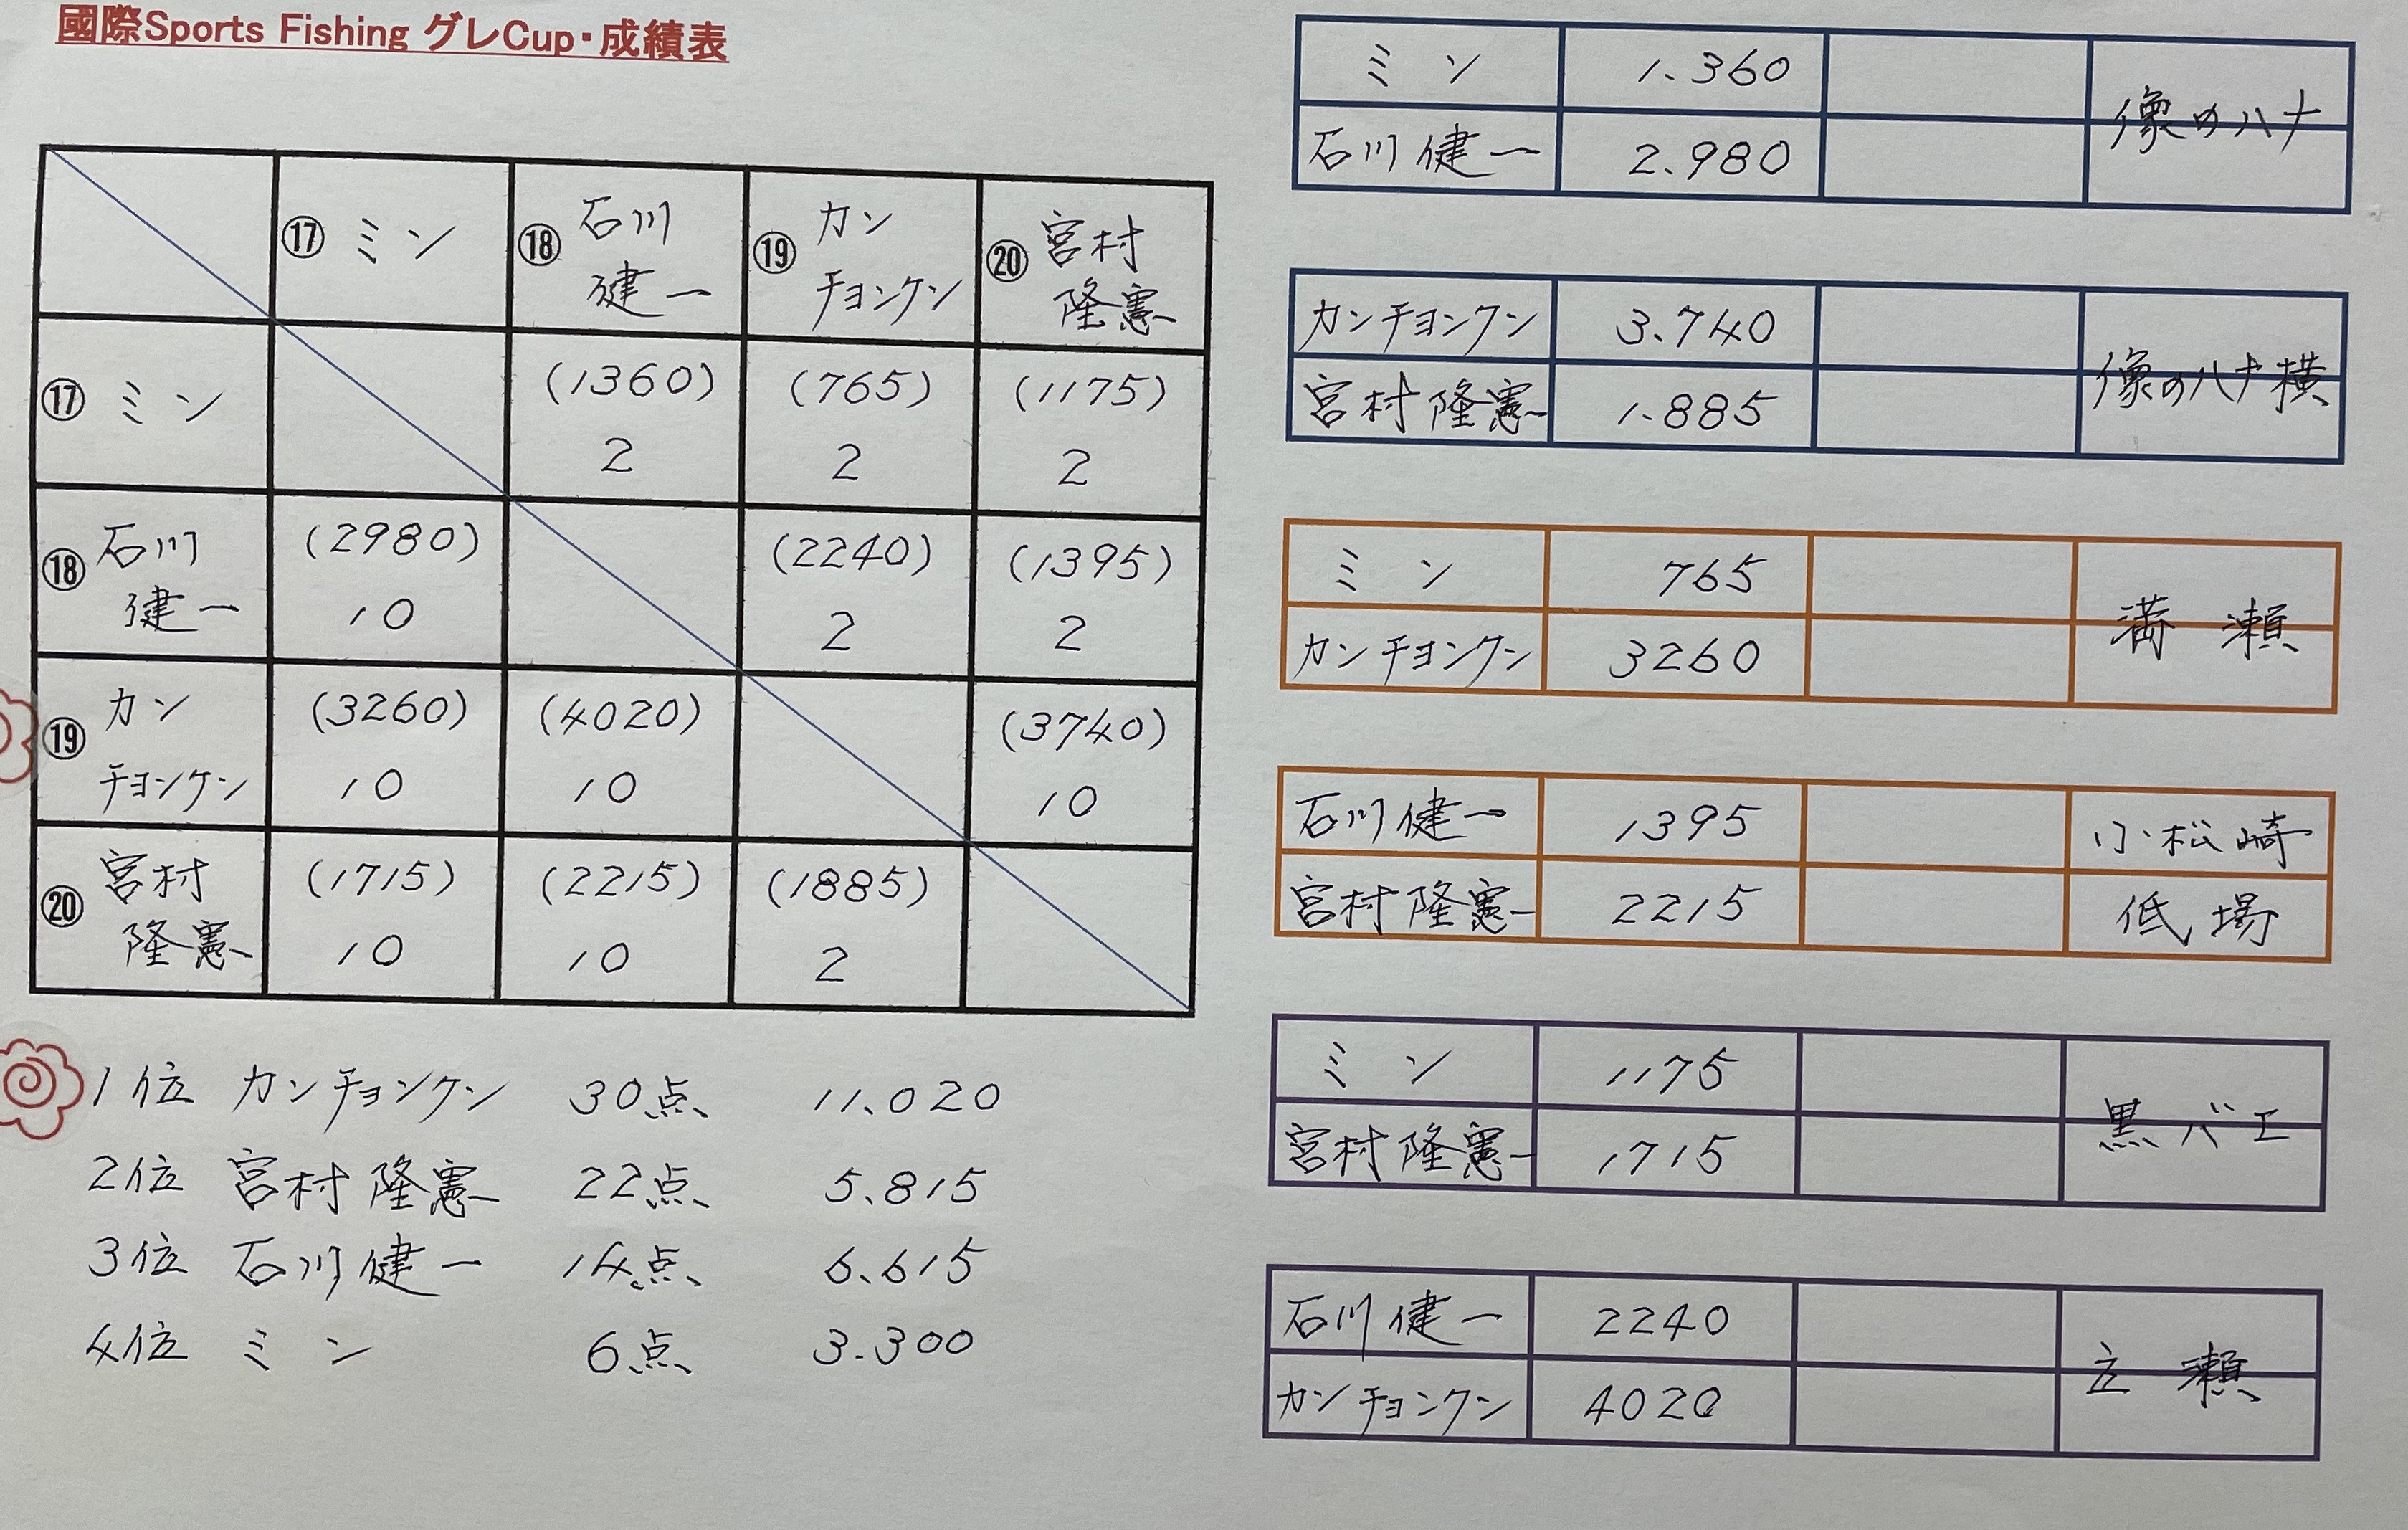 國際Sports Fishing グレCup・成績表
⑰ ミン ⑱ 石川健一 ⑲ カンチョンケン ⑳ 宮村隆憲
⑰ ミン (1360) (765) (1175)
2 2 2
⑱ 石川健一 (2980) (2240) (1395)
10 2 2
⑲ カンチョンケン (3260) (4020) (3740)
10 10 10
⑳ 宮村隆憲 (1715) (2215) (1885)
10 10 2
1位 カンチョンクン 30点 11.020
2位 宮村隆憲 22点 5.815
3位 石川健一 14点 6.615
4位 ミン 6点 3.300
ミン 1.360 像のハナ
石川健一 2.980
カンチョンクン 3.740 像のハナ横
宮村隆憲 1.885
ミン 765 満瀬
カンチョンクン 3260
石川健一 1395 小松崎
宮村隆憲 2215 低場
ミン 1175 黒バエ
宮村隆憲 1715
石川健一 2240 立瀬
カンチョンクン 4020